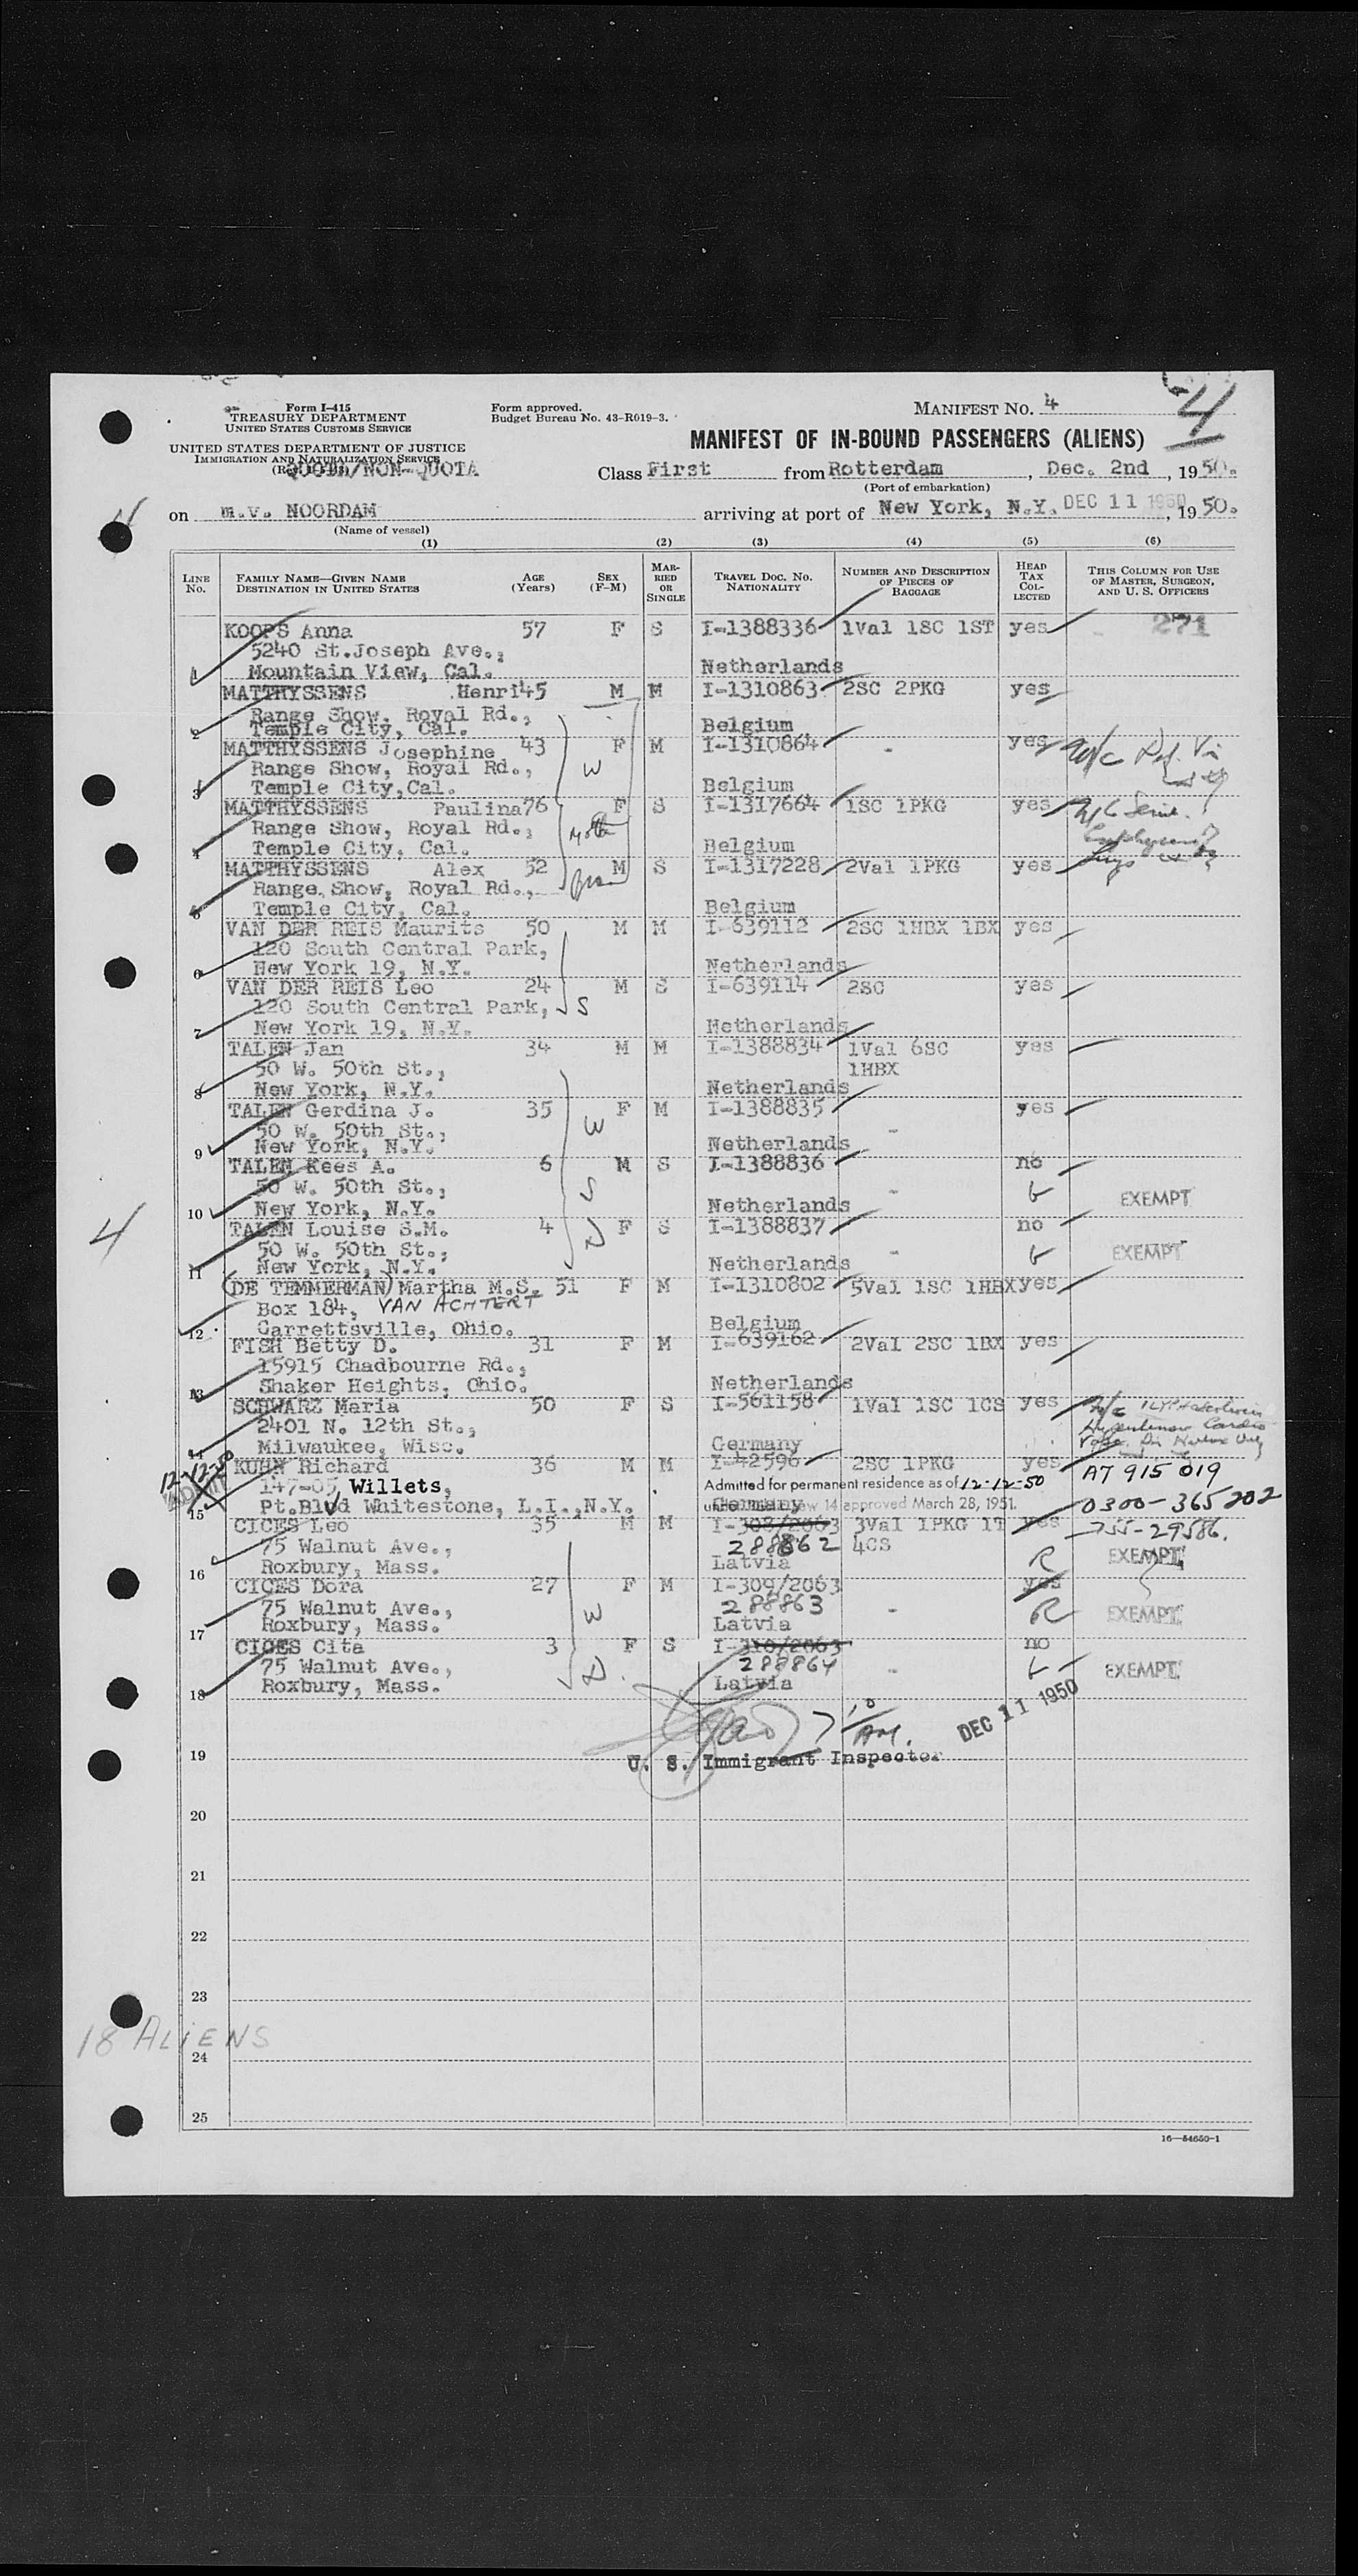 Form I-415
TREASURY DEPARTMENT
UNITED STATES CUSTOMS SERVICE
UNITED STATES DEPARTMENT OF JUSTICE
IMMIGRATION AND NATURALIZATION SERVICE
QUOTA/NON-QUOTA
Form approved.
Budget Bureau No. 43-R019-3.
MANIFEST NO. 4
4
MANIFEST OF IN-BOUND PASSENGERS (ALIENS)
Class First from Rotterdam, Dec. 2nd, 1950.
(Port of embarkation)
on m.v. NOORDAM arriving at port of New York, N.Y. DEC 11 1950, 1950.
(Name of vessel)
(1) (2) (3) (4) (5) (6)
LINE NO. FAMILY NAME—GIVEN NAME DESTINATION IN UNITED STATES AGE (Years) SEX (F-M) MARRIED OR SINGLE TRAVEL DOC. NO. NATIONALITY NUMBER AND DESCRIPTION OF PIECES OF BAGGAGE HEAD TAX COLLECTED THIS COLUMN FOR USE OF MASTER, SURGEON, AND U. S. OFFICERS
KOOPS Anna 57 F S I-1388336 1Val 1SC 1ST yes 271
5240 St.Joseph Ave.,
1 Mountain View, Cal. Netherlands
MATTHYSSENS Henri 45 M M I-1310863 2SC 2PKG yes
Range Show, Royal Rd.,
2 Temple City, Cal. Belgium
MATTHYSSENS Josephine 43 F M I-1310864 - yes
Range Show, Royal Rd., W
3 Temple City, Cal. Belgium
MATTHYSSENS Paulina 76 F S I-1317664 1SC 1PKG yes
Range Show, Royal Rd.,
4 Temple City, Cal. Belgium
MATTHYSSENS Alex 52 M S I-1317228 2Val 1PKG yes
Range Show, Royal Rd.,
5 Temple City, Cal. Belgium
VAN DER REIS Maurits 50 M M I-639112 2SC 1HBX 1BX yes
120 South Central Park,
6 New York 19, N.Y. Netherlands
VAN DER REIS Leo 24 M S I-639114 2SC yes
120 South Central Park, S
7 New York 19, N.Y. Netherlands
TALEN Jan 34 M M I-1388834 1Val 6SC yes
50 W. 50th St., 1HBX
8 New York, N.Y. Netherlands
TALEN Gerdina J. 35 F M I-1388835 yes
50 W. 50th St., W -
9 New York, N.Y. Netherlands
TALEN Kees A. 6 M S I-1388836 no
50 W. 50th St., S - EXEMPT
10 New York, N.Y. Netherlands
TALEN Louise S.M. 4 D F S I-1388837 no
50 W. 50th St., - EXEMPT
11 New York, N.Y. Netherlands
(DE TEMMERMAN) Martha M.S. 51 F M I-1310802 5Val 1SC 1HBX yes
Box 184, VAN ACHTERT
12 Garrettsville, Ohio. Belgium
FISH Betty D. 31 F M I-639162 2Val 2SC 1BX yes
15915 Chadbourne Rd.,
13 Shaker Heights, Ohio. Netherlands
SCHWARZ Maria 50 F S I-561158 1Val 1SC 1CS yes
2401 N. 12th St.,
14 Milwaukee, Wisc. Germany
12-12-50 KUHN Richard 36 M M I-42596 2SC 1PKG yes A7 915 019
147-05 Willets, Admitted for permanent residence as of 12-12-50
15 Pt.Blvd Whitestone, L.I.,N.Y. Germany 14 approved March 28, 1951. 0300-365202
CICES Leo 35 M M I-308/2063 3Val 1PKG 1T yes 755-29586.
75 Walnut Ave., 288862 4CS R EXEMPT
16 Roxbury, Mass. Latvia
CICES Dora 27 F M I-309/2063 yes
75 Walnut Ave., W 288863 - R EXEMPT
17 Roxbury, Mass. Latvia
CICES Cita 3 F S I-310/2063 no
75 Walnut Ave., D. 288864 - EXEMPT
18 Roxbury, Mass. Latvia
AM. DEC 11 1950
19 U. S. Immigrant Inspector
20
21
22
23
18 ALIENS
24
25
16—54650-1
4